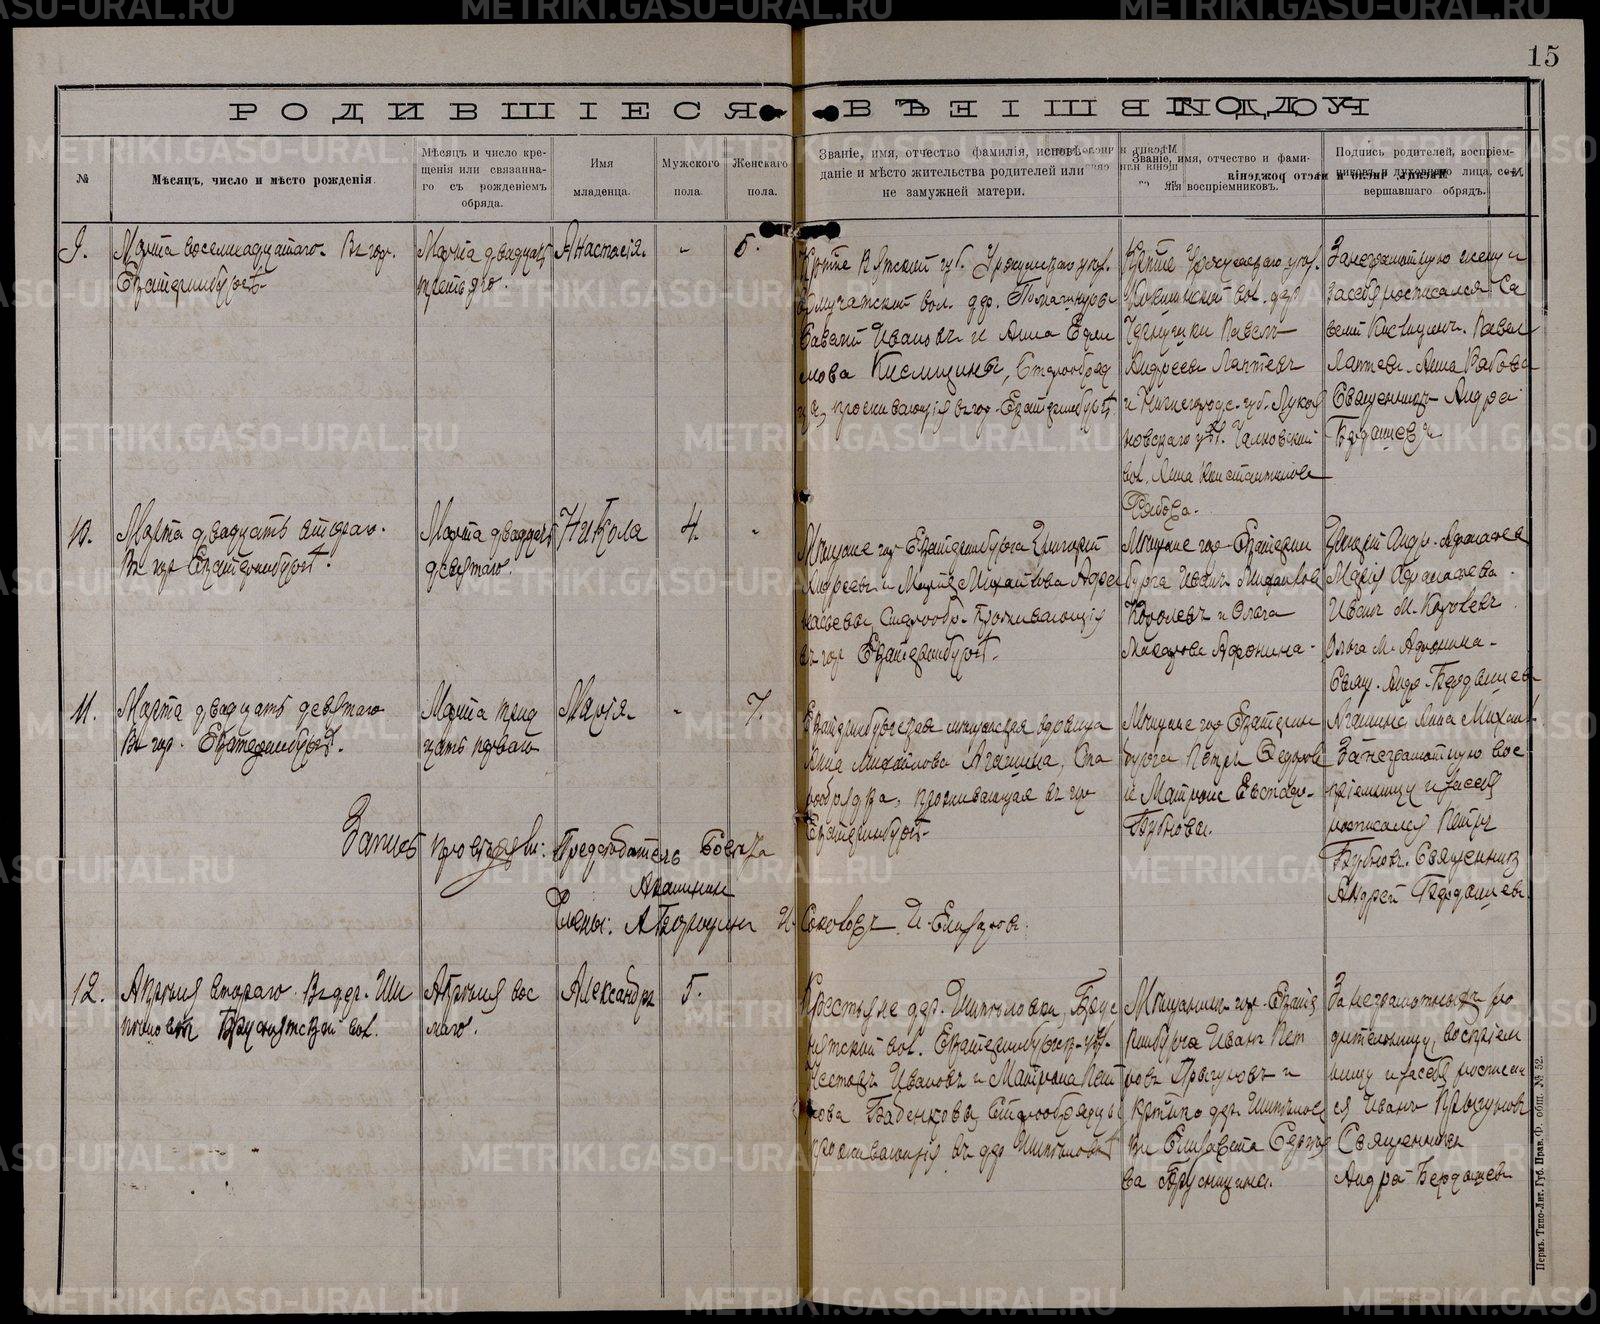 15
РОДИВШІЕСЯ
№
Мѣсяцъ, число и мѣсто рожденія.
Мѣсяцъ и число кре-
щенія или связанна-
го съ рожденіемъ
обряда.
Имя
младенца.
Мужского
пола.
Женскаго
пола.
Званіе, имя, отчество фамилія, исповѣ-
даніе и мѣсто жительства родителей или
не замужней матери.
Званіе, имя, отчество и фами-
лія воспріемниковъ.
Подпись родителей, воспріем-
никовъ и духовнаго лица, со-
вершавшаго обрядъ.
9.
Марта восемнадцатаго. Въ гор.
Екатеринбургѣ.
Марта двадцать
третьяго.
Анастасія.
-
5.
Кр-не Вятской губ. Уржумскаго уѣз.
вол. дер.
Савелій Ивановъ и Анна Ефи
мова Кислицины, Старообряд
цы, проживающія въ гор. Екатеринбургѣ
Кр-не Уржумскаго уѣз.
вол. дер.
Павелъ
Андреевъ Лаптевъ
и Нижегородс. губ. Лукоя
новскаго уѣз.
вол. Анна Константинова
Рябова.
За неграмотную жену и
за себя росписался Са
велій Кислицинъ. Павел
Лаптевъ. Анна Рябова
Священникъ Андрей
Бердышевъ
10.
Марта двадцать втораго.
Въ гор. Екатеринбургѣ.
Марта двадцать
девятаго.
Никола
4.
-
Мѣщане гор. Екатеринбурга Григорій
Андреевъ и Марія Михайлова Афа
насьевы, Старообр. проживающія
въ гор. Екатеринбургѣ.
Мѣщане гор. Екатерин
бурга Иванъ Михайловъ
Королевъ и Ольга
Макарова Афонина.
Григорій Андр. Афанасьев
Марія Афанасьева.
Иванъ М. Королевъ.
Ольга М. Афонина.
Свящ. Андр. Бердышев
11.
Марта двадцать девятаго
Въ гор. Екатеринбургѣ.
Марта трид
цать перваго
Марія.
-
7.
Екатеринбургская мѣщанская
Анна Михайлова Агашина, Ста
рообрядка, проживающая въ гор.
Екатеринбургѣ.
Мѣщане гор. Екатерин
бурга Петръ Федоровъ
и Матрона
Бубновы.
Агашина Анна Михай.
За неграмотную вос
пріемницу и за себя
росписался Петръ
Бубновъ. Священникъ
Андрей Бердышевъ.
Запись провѣряли: Предсѣдатель Совѣта
Члены: И. Соколовъ И.
12.
Апрѣля втораго. Въ дер. Ши
пиловкѣ Бруснятской вол.
Апрѣля вос
маго.
Александръ
5.
Крестьяне дер. Шипиловки, Брус
нятской вол. Екатеринбургск. уѣз.
Ивановъ и Матрона Пет
рова Бабенковы, Старообрядцы
проживающія въ дер. Шипиловкѣ
Мѣщанинъ гор. Екате
ринбурга Иванъ Пет
ровъ Прыгуновъ и
кр-тка дер. Шипилов
ки Елизавета
ва Брусницына.
За неграмотныхъ ро
дительницу, воспріем
ницу и за себя росписал
ся Иванъ Прыгуновъ
Священникъ
Андрей Бердышевъ
Пермь. Типо-Лит. Губ. Прав. Ф. общ. № 52.
METRIKI.GASO-URAL.RU